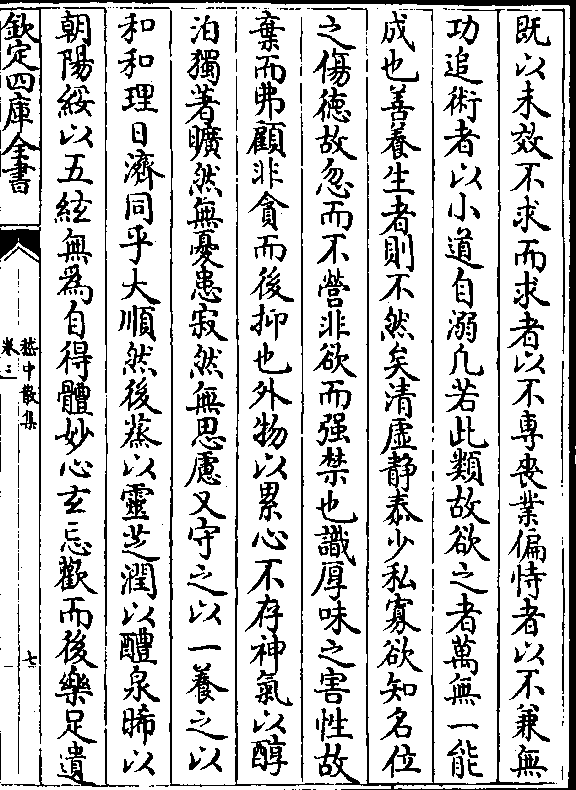 既以未效不求而求者以不專喪業偏恃者以不兼無
功追術者以小道自溺凡若此類故欲之者萬無一能
成也善養生者則不然矣清虛靜泰少私寡欲知名位
之傷德故忽而不營非欲而强禁也識厚味之害性故
棄而弗顧非貪而後抑也外物以累心不存神氣以醇
泊獨著曠然無憂患寂然無思慮又守之以一養之以
和和理日濟同乎大順然後蒸以靈芝潤以醴泉晞以
朝陽綏以五絃無為自得體妙心玄忘歡而後樂足遺
欽定四庫全書
嵇中散集
卷三
七